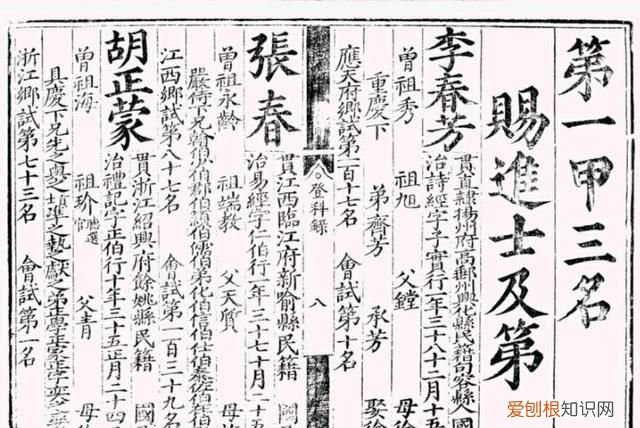 第一甲三名
賜進士及第
李春芳
貫直隸揚州府高郵州興化縣民籍句容縣人國
治詩經字子實行一年三十八十二月十五
曾祖秀 祖旭 父鏜 母徐
重慶下 弟齊芳 承芳 娶徐
應天府鄉試第一百十七名 會試第十名
登科錄 八
張春
貫江西臨江府新喻縣民籍 國
治易經字仁伯行一年三十七十月二十五
曾祖永齡 祖端教 父天質 母
嚴侍下兄
江西鄉試第八十七名 會試第一百三十九名
胡正蒙
貫浙江紹興府餘姚縣民籍 國
治禮記字正伯行十年三十五正月二十四
曾祖海 祖玠聽選官 父青 母
具慶下兄
浙江鄉試第七十三名 會試第一名
爱刨根知识网